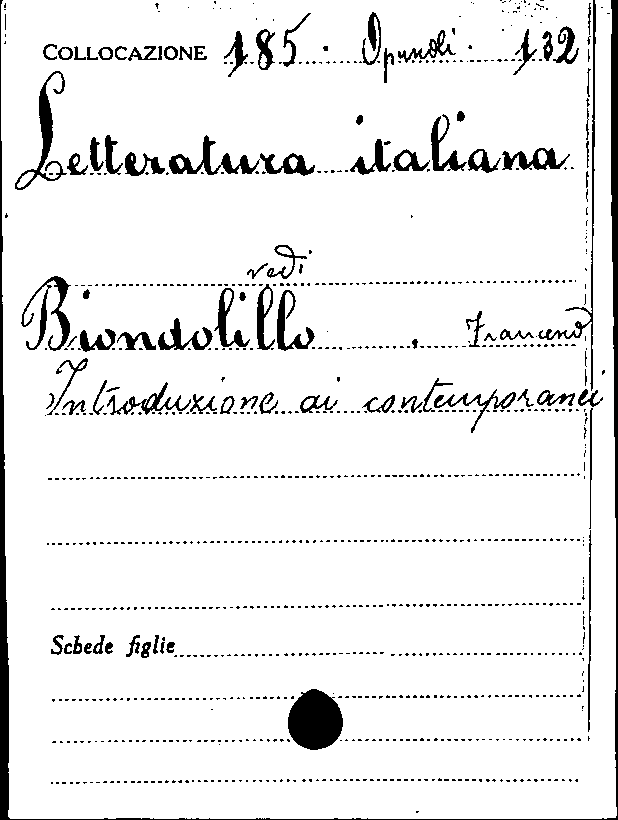 COLLOCAZIONE 185. Opuscoli. 132
Letteratura italiana
vedi
Biondolillo . Francesco
Introduzione ai contemporanei
Schede figlie